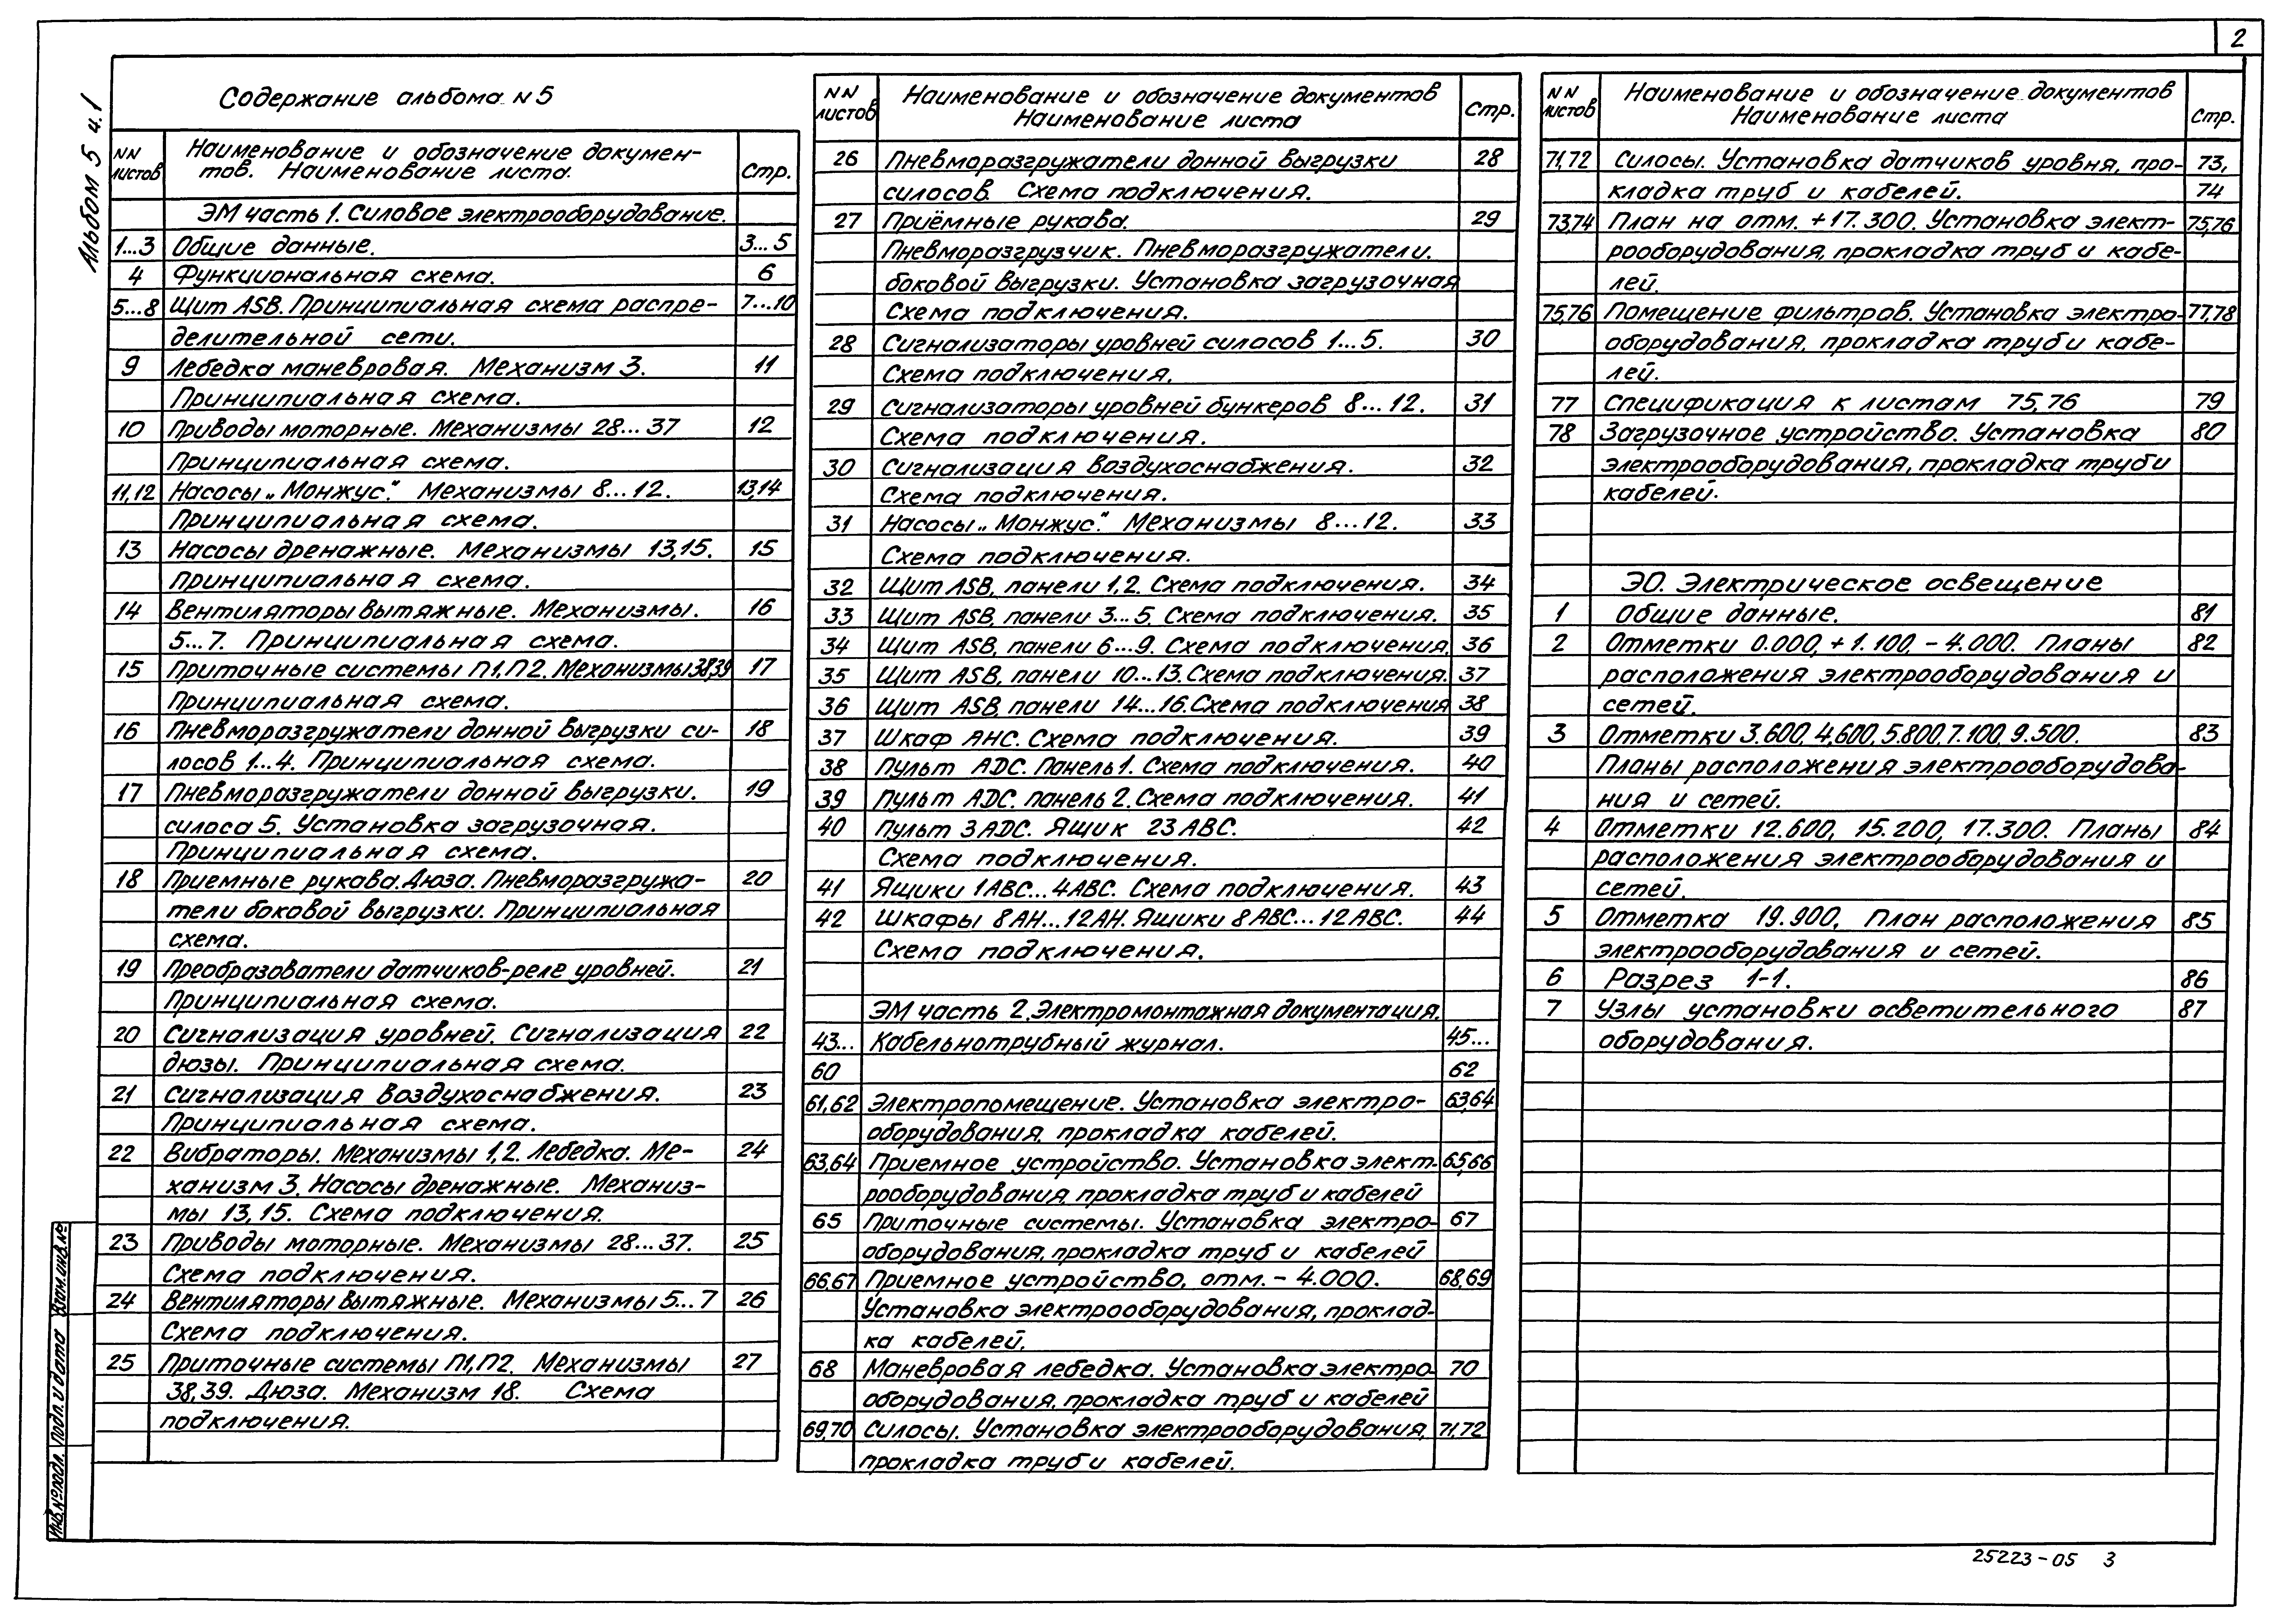 2
Альбом 5 ч.1
Содержание альбома N 5
NN листов
Наименование и обозначение докумен-
тов. Наименование листа.
Стр.
ЭМ часть 1. Силовое электрооборудование.
1...3 Общие данные. 3...5
4 Функциональная схема. 6
5...8 Щит ASB. Принципиальная схема распре- 7...10
делительной сети.
9 Лебедка маневровая. Механизм 3. 11
Принципиальная схема.
10 Приводы моторные. Механизмы 28...37 12
Принципиальная схема.
11,12 Насосы „Монжус." Механизмы 8...12. 13,14
Принципиальная схема.
13 Насосы дренажные. Механизмы 13,15. 15
Принципиальная схема.
14 Вентиляторы вытяжные. Механизмы. 16
5...7. Принципиальная схема.
15 Приточные системы П1,П2. Механизмы 38,39 17
Принципиальная схема.
16 Пневморазгружатели донной выгрузки си- 18
лосов 1...4. Принципиальная схема.
17 Пневморазгружатели донной выгрузки. 19
силоса 5. Установка загрузочная.
Принципиальная схема.
18 Приемные рукава. Дюза. Пневморазгружа- 20
тели боковой выгрузки. Принципиальная
схема.
19 Преобразователи датчиков-реле уровней. 21
Принципиальная схема.
20 Сигнализация уровней. Сигнализация 22
дюзы. Принципиальная схема.
21 Сигнализация воздухоснабжения. 23
Принципиальная схема.
22 Вибраторы. Механизмы 1,2. Лебедка. Ме- 24
ханизм 3. Насосы дренажные. Механиз-
мы 13,15. Схема подключения.
23 Приводы моторные. Механизмы 28...37. 25
Схема подключения.
24 Вентиляторы вытяжные. Механизмы 5...7 26
Схема подключения.
25 Приточные системы П1,П2. Механизмы 27
38,39. Дюза. Механизм 18. Схема
подключения.
NN листов
Наименование и обозначение документов
Наименование листа
Стр.
26 Пневморазгружатели донной выгрузки 28
силосов. Схема подключения.
27 Приёмные рукава. 29
Пневморазгрузчик. Пневморазгружатели.
боковой выгрузки. Установка загрузочная
Схема подключения.
28 Сигнализаторы уровней силосов 1...5. 30
Схема подключения.
29 Сигнализаторы уровней бункеров 8...12. 31
Схема подключения.
30 Сигнализация воздухоснабжения. 32
Схема подключения.
31 Насосы „Монжус." Механизмы 8...12. 33
Схема подключения.
32 Щит ASB, панели 1,2. Схема подключения. 34
33 Щит ASB, панели 3...5. Схема подключения. 35
34 Щит ASB, панели 6...9. Схема подключения. 36
35 Щит ASB, панели 10...13. Схема подключения. 37
36 Щит ASB, панели 14...16. Схема подключения 38
37 Шкаф АНС. Схема подключения. 39
38 Пульт ADC. Панель 1. Схема подключения. 40
39 Пульт ADC. Панель 2. Схема подключения. 41
40 Пульт 3ADC. Ящик 23ABC. 42
Схема подключения.
41 Ящики 1ABC...4ABC. Схема подключения. 43
42 Шкафы 8АН...12АН. Ящики 8ABC...12ABC. 44
Схема подключения.
ЭМ часть 2. Электромонтажная документация.
43... Кабельнотрубный журнал. 45...
60 62
61,62 Электропомещение. Установка электро- 63,64
оборудования, прокладка кабелей.
63,64 Приемное устройство. Установка элект- 65,66
рооборудования, прокладка труб и кабелей
65 Приточные системы. Установка электро- 67
оборудования, прокладка труб и кабелей
66,67 Приемное устройство, отм. - 4.000. 68,69
Установка электрооборудования, проклад-
ка кабелей.
68 Маневровая лебедка. Установка электро- 70
оборудования, прокладка труб и кабелей
69,70 Силосы. Установка электрооборудования, 71,72
прокладка труб и кабелей.
NN листов
Наименование и обозначение документов
Наименование листа
Стр.
71,72 Силосы. Установка датчиков уровня, про- 73,
кладка труб и кабелей. 74
73,74 План на отм. +17.300. Установка элект- 75,76
рооборудования, прокладка труб и кабе-
лей.
75,76 Помещение фильтров. Установка электро- 77,78
оборудования, прокладка труб и кабе-
лей.
77 Спецификация к листам 75,76 79
78 Загрузочное устройство. Установка 80
электрооборудования, прокладка труб и
кабелей.
ЭО. Электрическое освещение
1 Общие данные. 81
2 Отметки 0.000, +1.100, -4.000. Планы 82
расположения электрооборудования и
сетей.
3 Отметки 3.600, 4,600, 5.800, 7.100, 9.500. 83
Планы расположения электрооборудова-
ния и сетей.
4 Отметки 12.600, 15.200, 17.300. Планы 84
расположения электрооборудования и
сетей.
5 Отметка 19.900, План расположения 85
электрооборудования и сетей.
6 Разрез 1-1. 86
7 Узлы установки осветительного 87
оборудования.
Взам.инв.№
Подп. и дата
Инв.№ подл.
25223-05 3